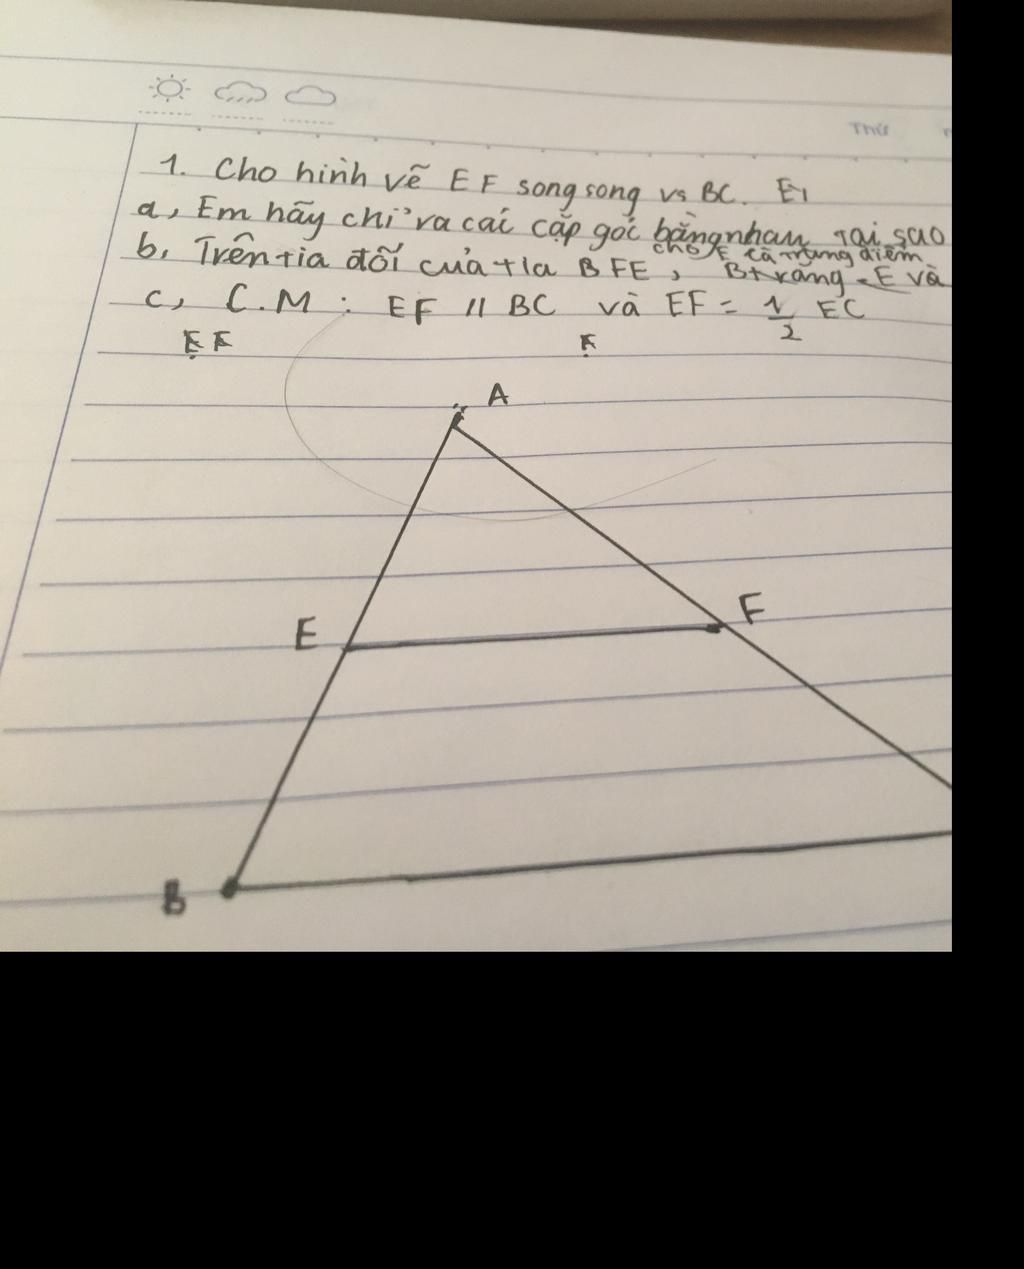 Thứ
1. Cho hình vẽ EF song song vs BC. E
a, Em hãy chỉ ra các cặp góc bằng nhau Tại sao
cho E là trung điểm
b, Trên tia đối của tia BFE, E và
c, C.M : EF // BC và EF = 1/2 EC
E F F
A
E F
B